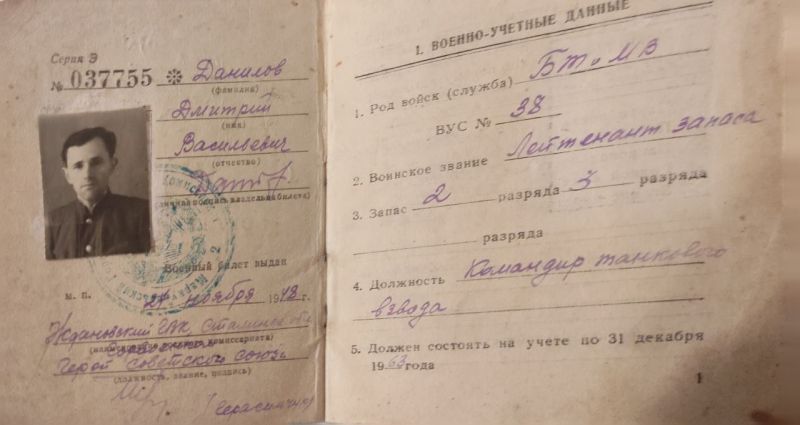 Серия Э
№ 037755 Данилов
(фамилия)
Дмитрий
(имя)
Васильевич
(отчество)
(личная подпись владельца билета)
Военный билет выдан
М. П.
21 ноября 1948 г.
Ждановский ГВК Сталинск обл
(наименование военного комиссариата)
Герой Советского Союза
(должность, звание, подпись)
1. ВОЕННО-УЧЕТНЫЕ ДАННЫЕ
1. Род войск (служба) БТ и МВ
ВУС № 38
2. Воинское звание Лейтенант запаса
3. Запас 2 разряда 3 разряда
разряда
4. Должность Командир танкового
взвода
5. Должен состоять на учете по 31 декабря
1963 года
1